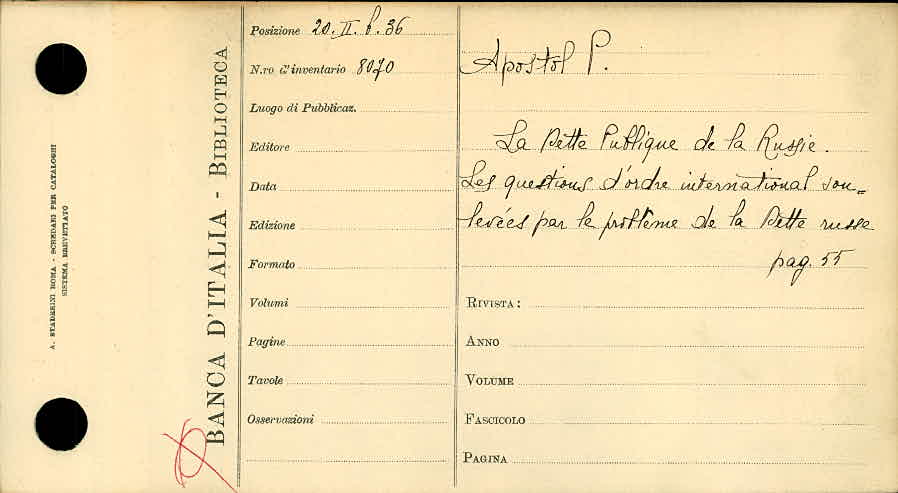 A. STADERINI ROMA - SCHEDARI PER CATALOGHI
SISTEMA BREVETTATO
BANCA D'ITALIA - BIBLIOTECA
Posizione 20. II. b. 36
N.ro d'inventario 8070
Luogo di Pubblicaz.
Editore
Data
Edizione
Formato
Volumi
Pagine
Tavole
Osservazioni
Apostol P.
La Dette Publique de la Russie.
Les questions d'ordre international sou=
levées par le problème de la Dette russe
pag. 55
RIVISTA:
ANNO
VOLUME
FASCICOLO
PAGINA